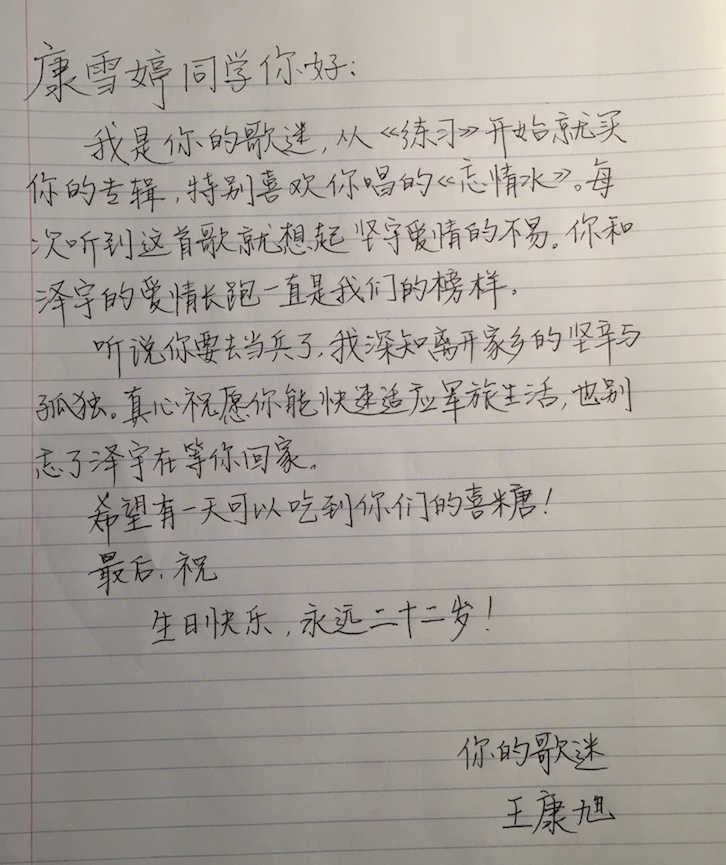 康雪婷同学你好：
我是你的歌迷，从《练习》开始就买
你的专辑，特别喜欢你唱的《忘情水》。每
次听到这首歌就想起坚守爱情的不易。你和
泽宇的爱情长跑一直是我们的榜样。
听说你要去当兵了，我深知离开家乡的坚辛与
孤独。真心祝愿你能快速适应军旅生活，也别
忘了泽宇在等你回家。
希望有一天可以吃到你们的喜糖！
最后，祝
生日快乐，永远二十二岁！
你的歌迷
王康旭